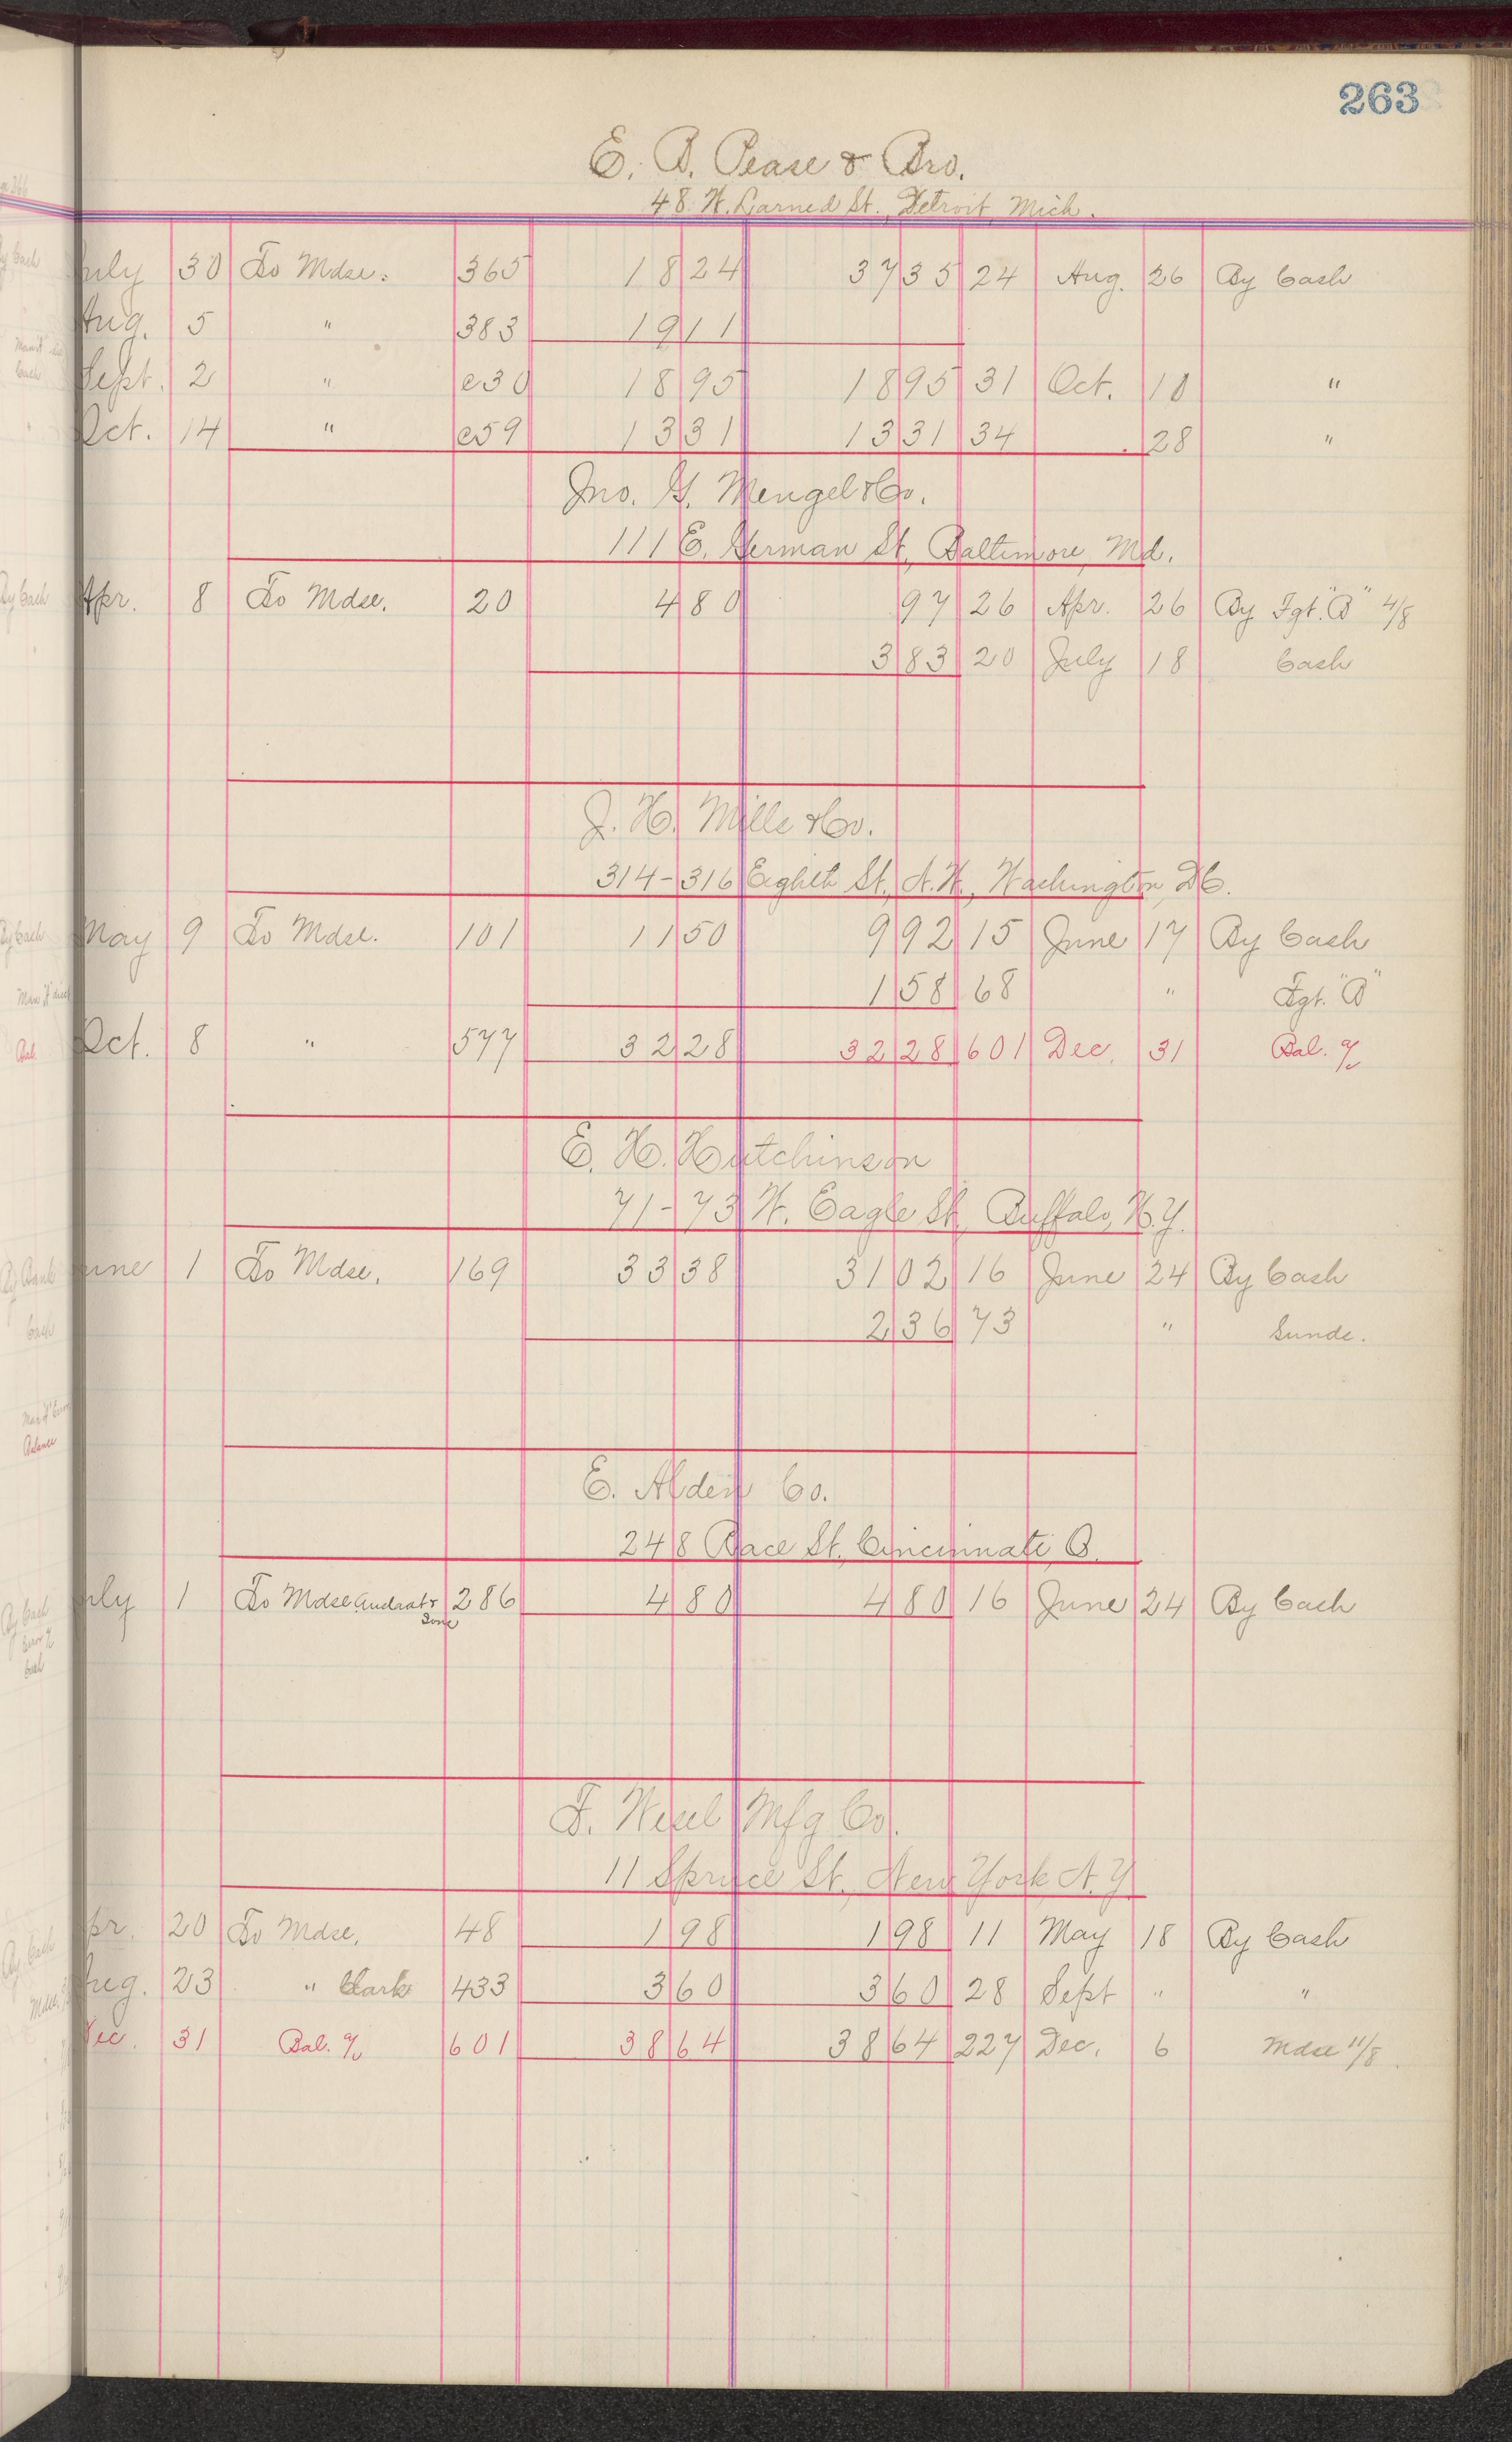 263
E. B. Pease & Bro.
48 W. Larned St., Detroit, Mich.
July 30 To Mdse. 365 1824 3735 24 Aug. 26 By Cash
Aug. 5 " 383 1911
Sept. 2 " e30 1895 1895 31 Oct. 10 "
Oct. 14 " e59 1331 1331 34 28 "
Jno. G. Mengel & Co.
111 E. German St., Baltimore, Md.
Apr. 8 To Mdse. 20 480 97 26 Apr. 26 By Fgt. "B" 4/8
383 20 July 18 Cash
J. H. Mills & Co.
314-316 Eighth St., N.W., Washington, D.C.
May 9 To Mdse. 101 1150 992 15 June 17 By Cash
158 68 " Fgt. "B"
Oct. 8 " 577 3228 3228 601 Dec. 31 Bal. %
E. H. Hutchinson
71-73 W. Eagle St., Buffalo, N.Y.
June 1 To Mdse. 169 3338 3102 16 June 24 By Cash
236 73 " Sunds.
E. Alden Co.
248 Race St., Cincinnati, O.
July 1 To Mdse. 286 480 480 16 June 24 By Cash
F. Wesel Mfg Co.
11 Spruce St., New York N.Y.
Apr. 20 To Mdse. 48 198 198 11 May 18 By Cash
Aug. 23 " Clark 433 360 360 28 Sept " "
Dec. 31 Bal. % 601 3864 3864 227 Dec. 6 Mdse 11/8